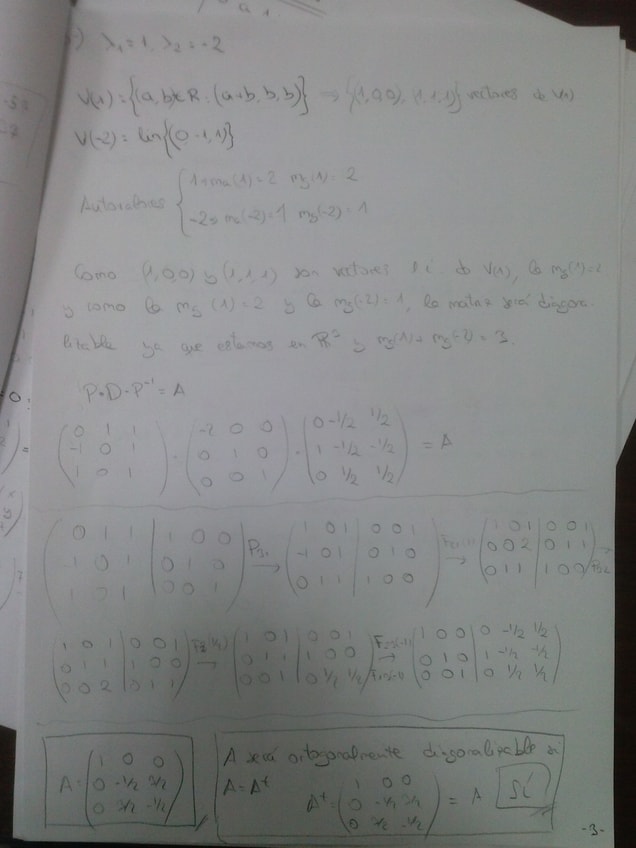 λ₁=1, λ₂=-2
V(1)={(a,b)∈R:(a+b,b,b)} ⇒ {(1,0,0),(1,1,1)} vectores de V(1)
V(-2)=lin{(0-1,1)}
Autovalores { 1→ma(1)=2 mg(1)=2
-2→ma(-2)=1 mg(-2)=1
Como (1,0,0) y (1,1,1) son vectores l.i. de V(1), la mg(1)=2
y como la mg (1)=2 y la mg(-2)=1, la matriz será diagona-
lizable ya que estamos en R³ y mg(1)+mg(-2)=3.
P·D·P⁻¹=A
(0 1 1) (-2 0 0) (0 -1/2 1/2)
(-1 0 1) · (0 1 0) · (1 -1/2 -1/2) = A
(1 0 1) (0 0 1) (0 1/2 1/2)
(0 1 1 | 1 0 0) (1 0 1 | 0 0 1) (1 0 1 | 0 0 1)
(-1 0 1 | 0 1 0) → (-1 0 1 | 0 1 0) → (0 0 2 | 0 1 1) →
(1 0 1 | 0 0 1) (0 1 1 | 1 0 0) (0 1 1 | 1 0 0)
(1 0 1 | 0 0 1) (1 0 1 | 0 0 1) (1 0 0 | 0 -1/2 1/2)
(0 1 1 | 1 0 0) → (0 1 1 | 1 0 0) → (0 1 0 | 1 -1/2 -1/2)
(0 0 2 | 0 1 1) (0 0 1 | 0 1/2 1/2) (0 0 1 | 0 1/2 1/2)
(1 0 0)
A=(0 -1/2 3/2)
(0 3/2 -1/2)
A será ortogonalmente diagonalizable si
A=Aᵗ
(1 0 0)
Aᵗ=(0 -1/2 3/2) = A Sí
(0 3/2 -1/2)
-3-